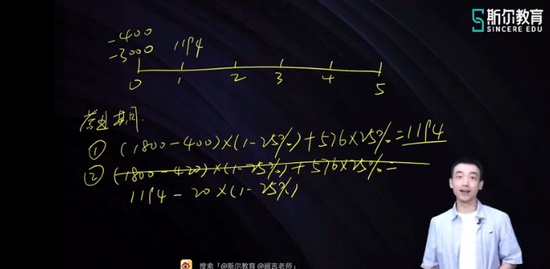 斯尔教育
SINCERE EDU
-400
-3000 1194
0 1 2 3 4 5
营业期间
① (1800-400)×(1-25%)+576×25%=1194
② (1800-420)×(1-25%)+576×25%=
1194-20×(1-25%)
搜索「@斯尔教育 @顾言老师」